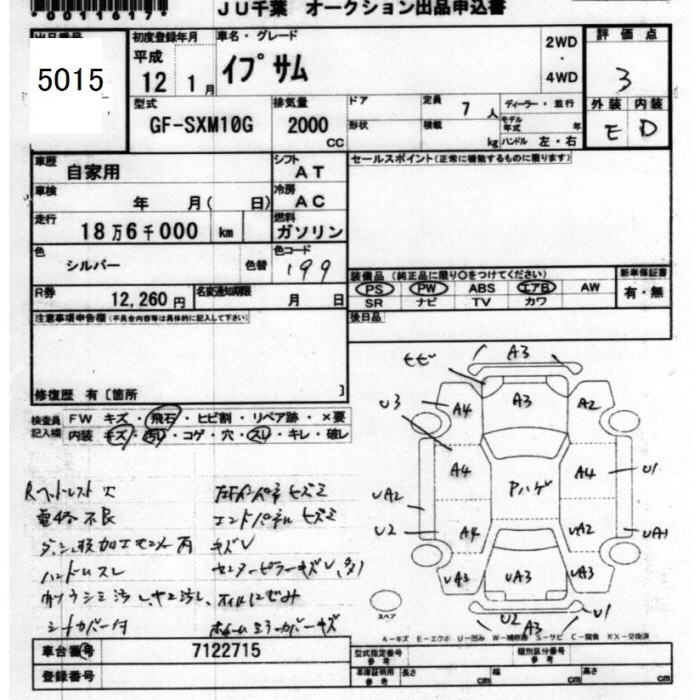 *00116171*
JU千葉 オークション出品申込書
出品番号
5015
初度登録年月
平成
12 1月
車名・グレード
イプサム
2WD
・
4WD
評価点
3
外装 内装
E D
型式
GF-SXM10G
排気量
2000
CC
ドア
形状
定員 7人
積載 kg
ディーラー・並行
モデル年式 年
ハンドル 左・右
車歴
自家用
シフト
AT
セールスポイント(正常に機能するものに限ります)
車検
年 月( 日)
冷房
AC
走行
18万6千000 km
燃料
ガソリン
色
シルバー
色替
色コード
199
装備品(純正品に限り○をつけてください)
PS PW ABS エアB AW
SR ナビ TV カワ
新車保証書
有・無
R券
12,260円
名変通知期限
月 日
後日品
注意事項申告欄(不具合内容等は具体的に記入して下さい)
修復歴 有〔箇所 〕
検査員記入欄
FW キズ・飛石・ヒビ割・リペア跡・×要
内装 キズ・汚れ・コゲ・穴・スレ・キレ・破レ
Rヘッドレスト欠
電格不良
ハンドルスレ
シートカバー付
エンドパネルヒズミ
キズU
センターピラーキズU
オイルにじみ
ホイールミラーカバーキズ
ヒビ
A3
A4 A3 A2
U3
A4 Pハゲ A4 U1
UA2
U2 A4 UA2 UA1
UA3 UA3 UA3
U2 A3 U1
スペア
A−キズ E−エクボ U−凹み W−補修跡 S−サビ C−腐食 XX−交換済
車台番号
7122715
登録番号
型式指定番号
参考
類別区分番号
参考
車庫証明用
参考
長さ cm 幅 cm 高さ cm